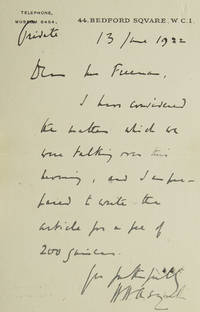 TELEPHONE,
MUSEUM 8454.
44, BEDFORD SQVARE, W.C.1.
Private
13 June 1922
Dear Mr Freeman,
I have considered
the matter which we
were talking over this
morning, and I am pre-
pared to write the
article for a fee of
200 guineas.
Yrs faithfully
H H Asquith